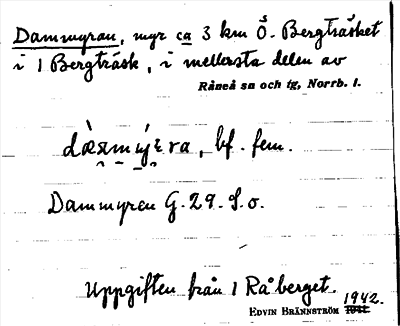 Dammyran, myr ca 3 km Ö. Bergträsket
i 1 Bergträsk, i mellersta delen av
Råneå sn och tg, Norrb. l.
bf. fem.
Dammyren G.29. S.o.
Uppgiften från 1 Råberget.
1942.
EDVIN BRÄNNSTRÖM 1941.